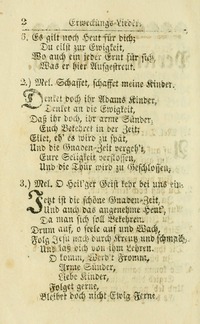 2 Erweckungs-Lieder.
5. Es gilt noch Heut für dich;
Du eilst zur Ewigkeit,
Wo auch ein jeder Ernt für sich
Was er hier Aufgestreut.
2.) Mel. Schaffet, schaffet meine Kinder.
Denket doch ihr Adams Kinder,
Denket an die Ewigkeit,
Daß ihr doch, ihr arme Sünder,
Euch Bekehret in der Zeit;
Eilet, eh' es wird zu spät,
Und die Gnaden-Zeit vergeh't,
Eure Seligkeit verschlossen,
Und die Thür wird zu Geschlossen;
3.) Mel. O Heil'ger Geist kehr bei uns ein.
Jetzt ist die schöne Gnaden-Zeit,
Und auch das angenehme Heut,
Da man sich soll Bekehren.
Drum auf, o seele auf und Wach,
Folg Jesu nach durch Kreutz und schmach
Und laß dich von ihm Lehren.
O komm, Werd't Fromm,
Arme Sünder,
Liebe Kinder,
Folget gerne,
Bleibet doch nicht Ewig Ferne.